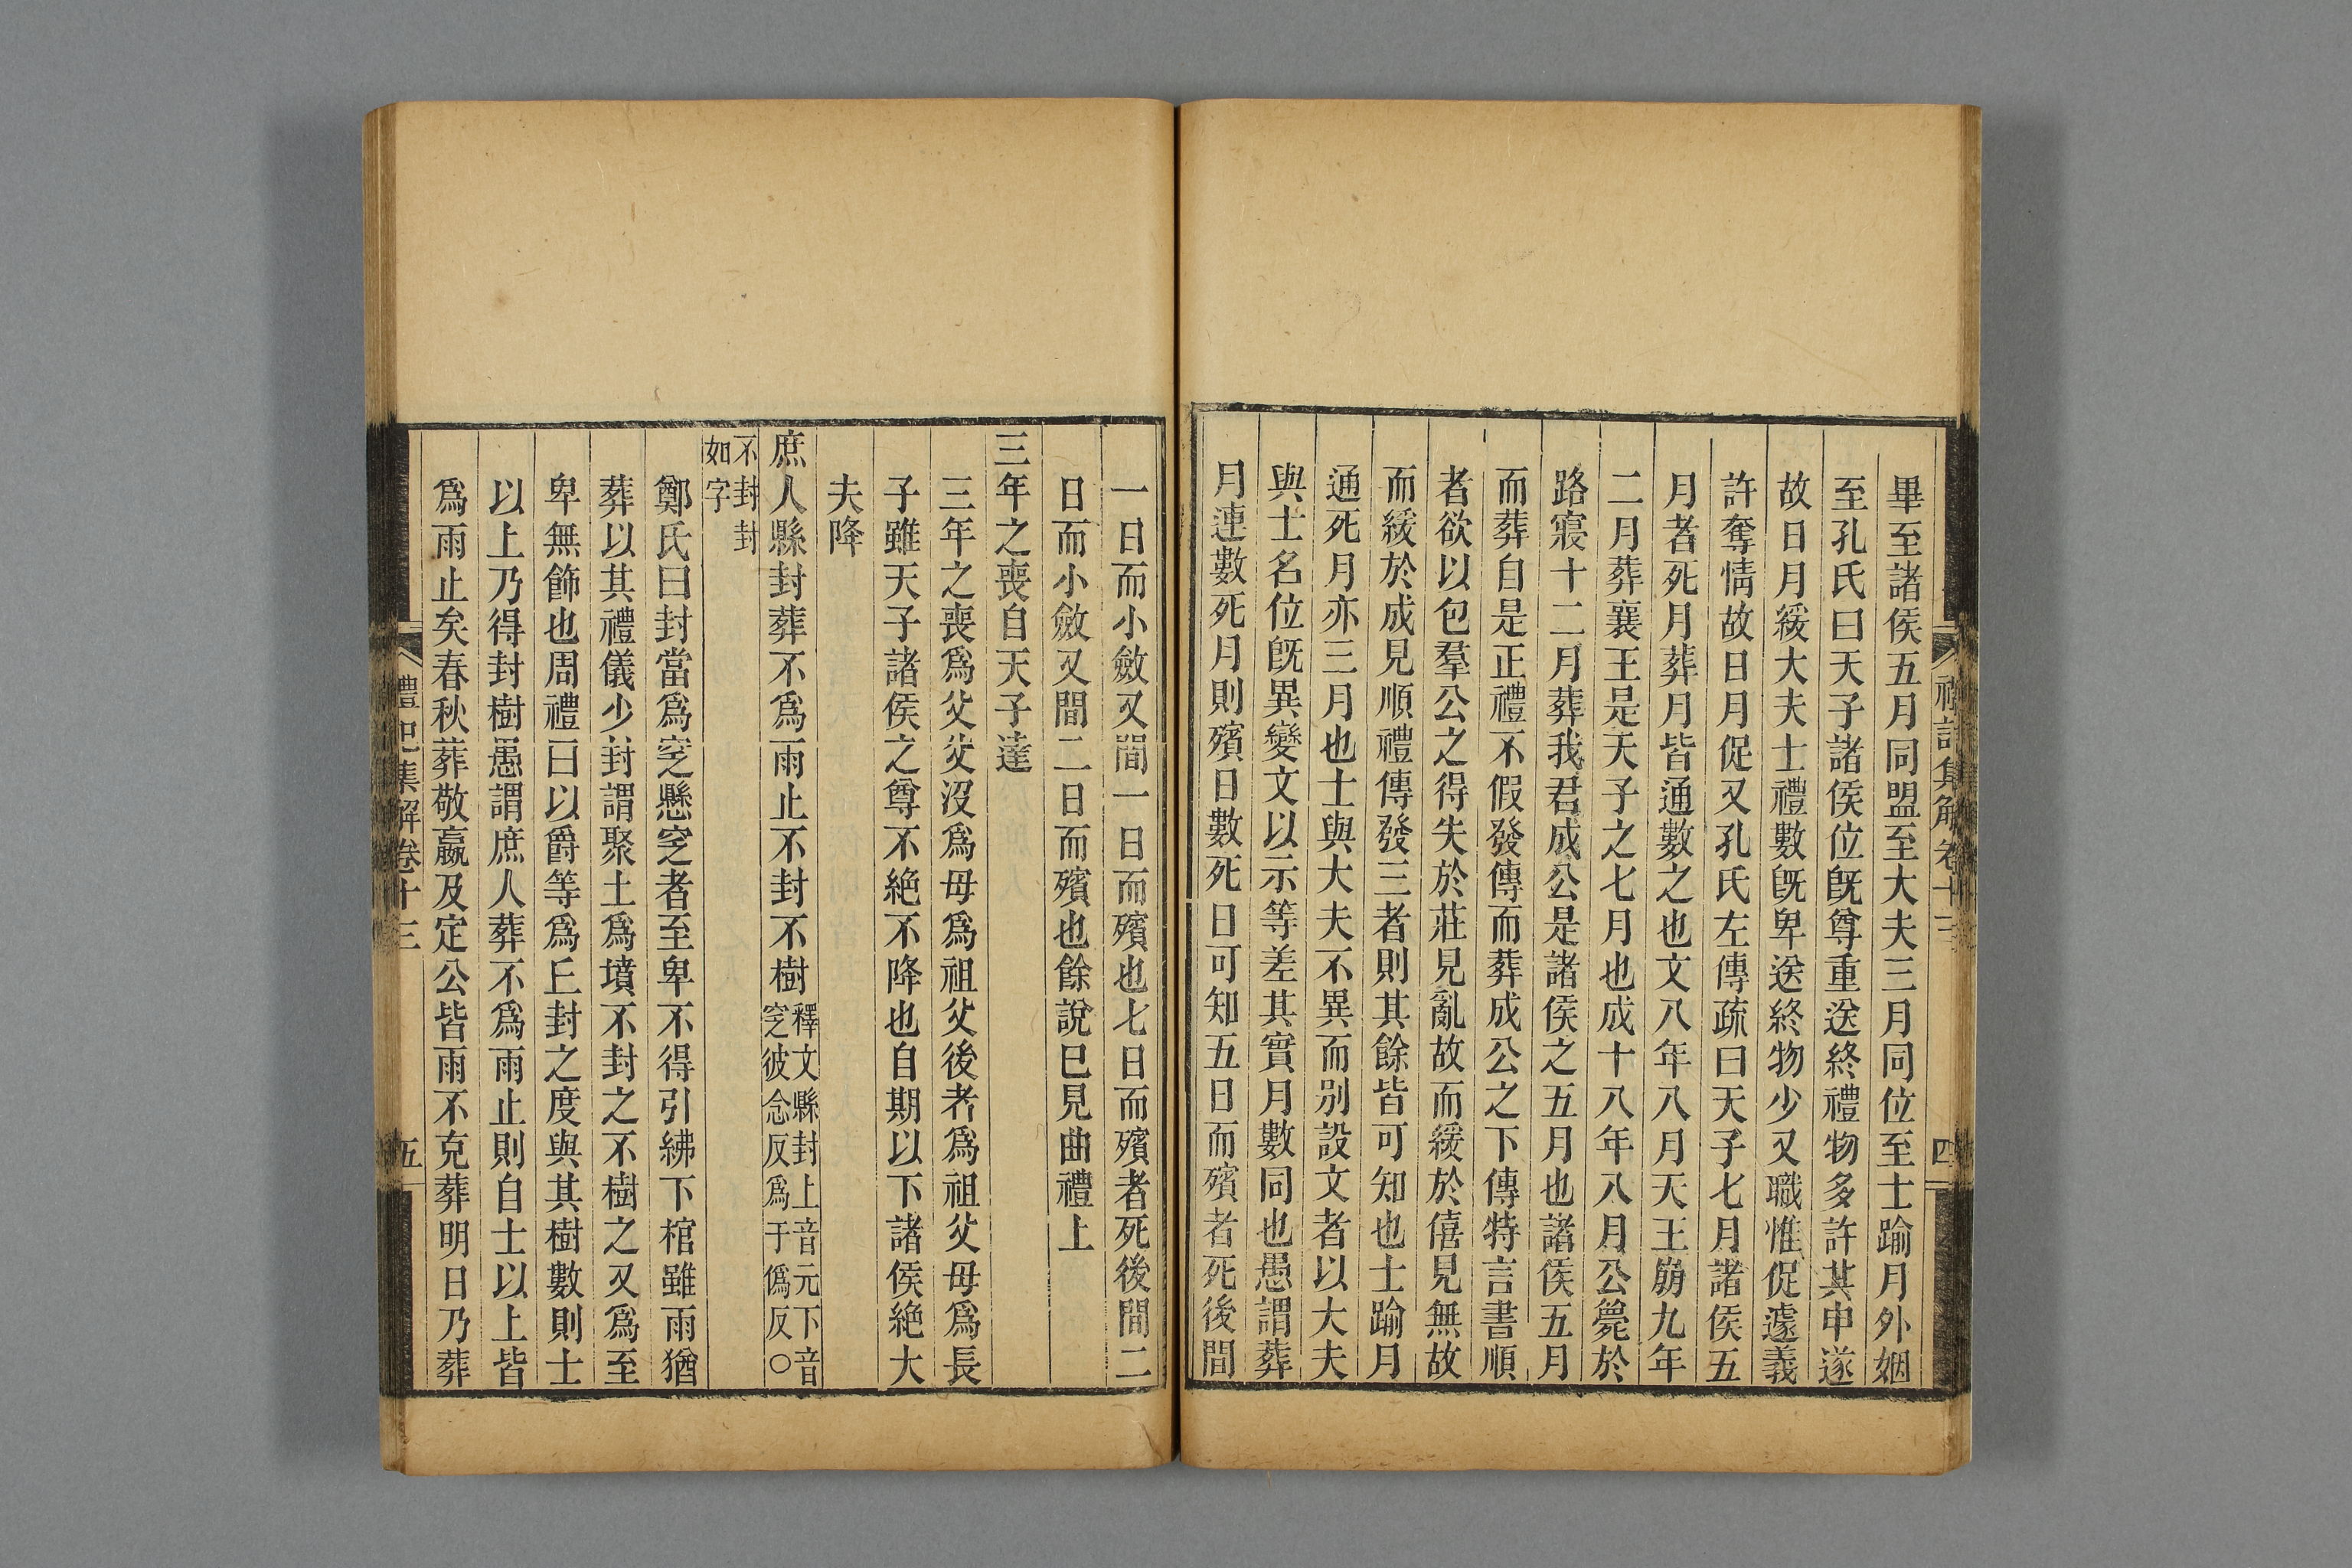 畢至諸侯五月同盟至大夫三月同位至士踰月外姻
至孔氏曰天子諸侯位旣尊重送終禮物多許其申遂
故日月緩大夫士禮數旣卑送終物少又職惟促遽義
許奪情故日月促又孔氏左傳疏曰天子七月諸侯五
月者死月葬月皆通數之也文八年八月天王崩九年
二月葬襄王是天子之七月也成十八年八月公薨於
路寢十二月葬我君成公是諸侯之五月也諸侯五月
而葬自是正禮不假發傳而葬成公之下傳特言書順
者欲以包羣公之得失於莊見亂故而緩於僖見無故
而緩於成見順禮傳發三者則其餘皆可知也士踰月
通死月亦三月也士與大夫不異而別設文者以大夫
與士名位旣異變文以示等差其實月數同也愚謂葬
月連數死月則殯日數死日可知五日而殯者死後間
禮記集解卷十三
四
一日而小斂又間一日而殯也七日而殯者死後間二
日而小斂又間二日而殯也餘說已見曲禮上
三年之喪自天子達
三年之喪爲父父沒爲母爲祖父後者爲祖父母爲長
子雖天子諸侯之尊不絶不降也自期以下諸侯絶大
夫降
庶人縣封葬不爲雨止不封不樹釋文縣封上音元下音窆彼念反爲于僞反○
不封封如字
鄭氏曰封當爲窆懸窆者至卑不得引紼下棺雖雨猶
葬以其禮儀少封謂聚土爲墳不封之不樹之又爲至
卑無飾也周禮曰以爵等爲丘封之度與其樹數則士
以上乃得封樹愚謂庶人葬不爲雨止則自士以上皆
爲雨止矣春秋葬敬嬴及定公皆雨不克葬明日乃葬
禮記集解卷十三
五